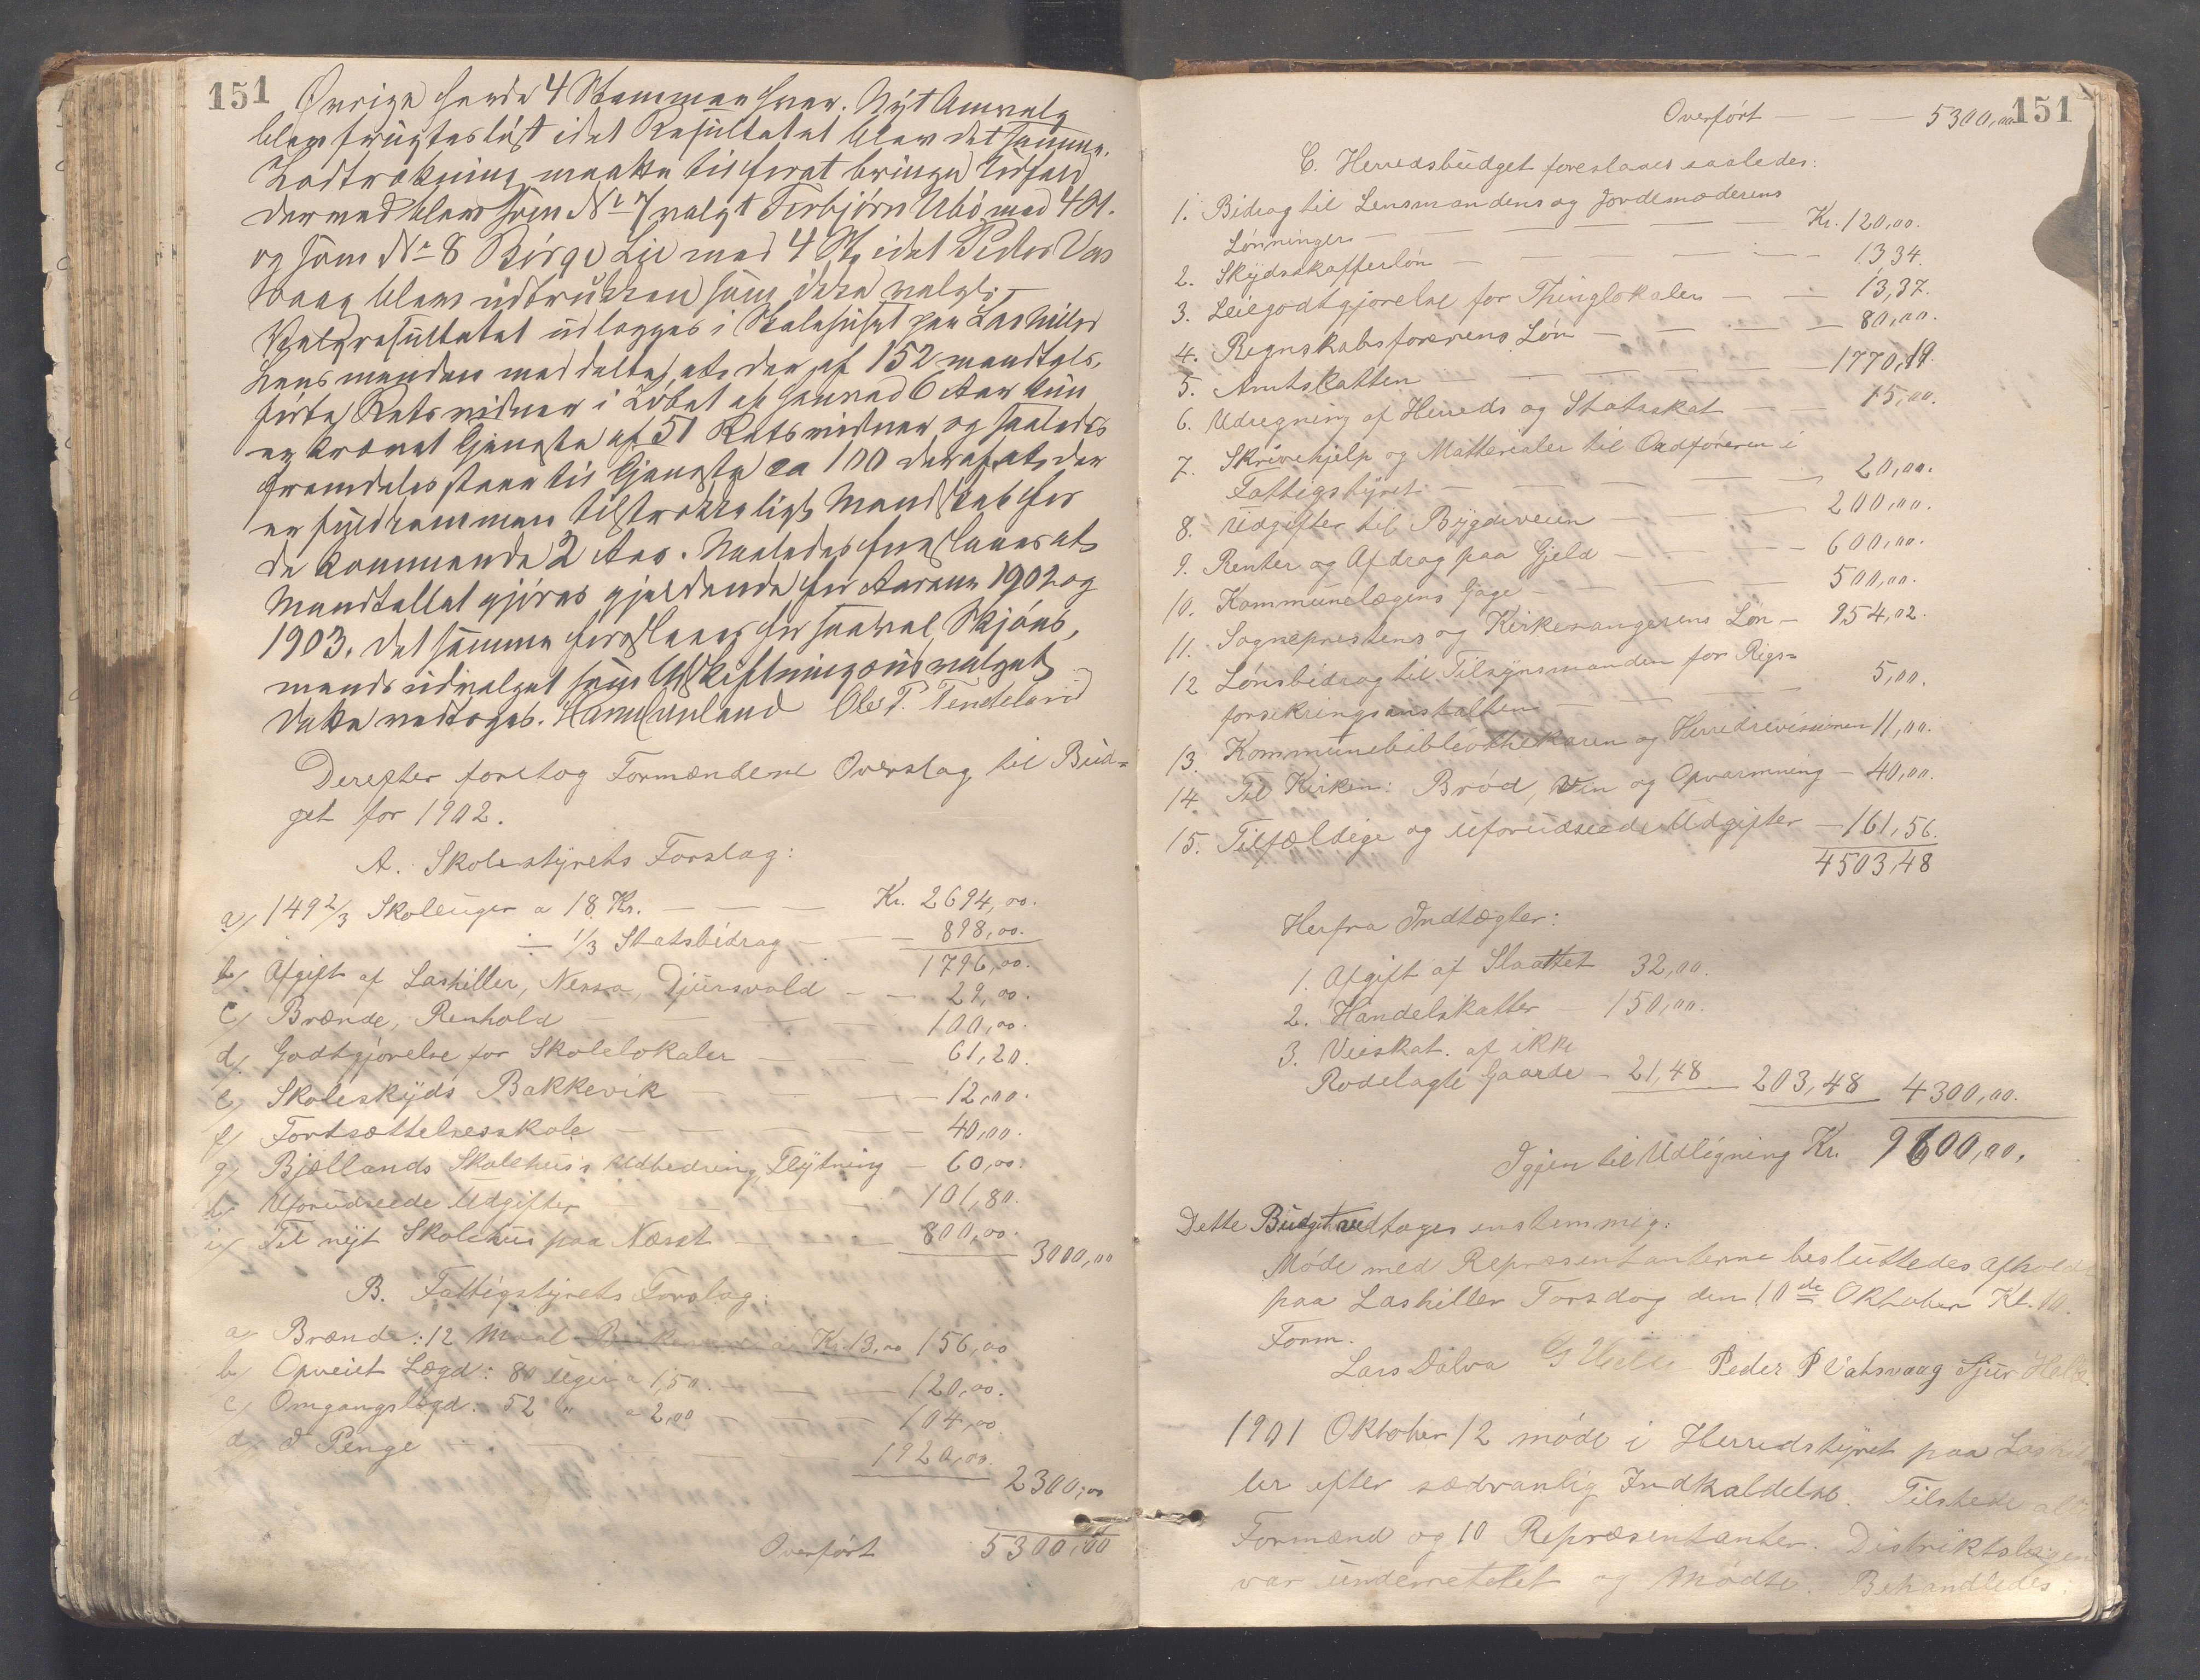 151
Øvrige havde 4 Stemmer hver. Nyt Omvalg
blev frugtesløst idet Resultatet blev det samme.
Lodtrækning maatte til forat bringe Udfald
dermed blev som No 7 valgt Torbjørn Ubø med 4 St.
og som No 8 Børge Lie med 4 St, idet Peder Vas
vaag blev udtrukken som ikke valgt.
Valgresultatet udlægges i Skolehuset paa Lashiller
Lensmanden meddelte, at der af 152 mandtals-
førte Retsvidner i Løbet af henved 6 Aar kun
er krævet Gjeneste af 51 Retsvidner og saaledes
fremdeles staar til Gjeneste ca 100 deraf at der
er fyldkommen tilstrækkeligt Mandskab for
de kommende 2 Aar. Saaledes foreslaaes at
Mandtallet gjøres gjeldende for Aarene 1902 og
1903. Det samme foreslaaes for saavel Skjøns-
mandsudvalget som Udskiftningsudvalget
Dette vedtoges. Ole T. Tendeland
Derefter foretog Formændene Overslag til Bud=
get for 1902.
A. Skolestyrets Forslag:
a/ 149 2/3 Skoleuger a 18 Kr. — — — Kr. 2694,00.
÷ 1/3 Statsbidrag — — — 898,00.
1796,00.
b/ Afgift af Lashiller, Nessa, Djursvold — — 29,00.
c/ Brænde, Renhold — — — 100,00.
d/ Godtgjørelse for Skolelokaler — — — 61,20.
e/ Skoleskyds Bakkevik — — — 12,00.
f/ Fortsættelsesskole — — — 40,00.
g/ Bjellands Skolehus's Udbedring, Flytning — 60,00.
h/ Uforudseede Udgifter — — 101,80.
i/ Til nyt Skolehus paa Næsset — — 800,00. 3000,00
B. Fattigstyrets Forslag:
a/ Brænde: 12 Maal a Kr. 13,00 156,00
b/ Opveiet Lægd: 80 Uger a 1,50. — — — 120,00.
c/ Omgangslægd: 52 " a 2,00 — — — 104,00
d/ I Penge — — — 1920,00. 2300,00
Overført 5300,00
151
Overført — — — 5300,00
C. Herredsbudget foreslaaes saaledes:
1. Bidrag til Lensmandens og Jordemoderens
Lønninger — — — Kr. 120,00.
2. Skydsskafferløn — — — 13,34.
3. Leiegodtgjørelse for Thinglokaler — — 13,37.
4. Regnskabsførerens Løn — — — 80,00.
5. Amtskatten — — — 1770,19.
6. Udregning af Herreds og Statsskat — — 15,00.
7. Skrivehjelp og Matterialer til Ordføreren i
Fattigstyret — — — 20,00.
8. Udgifter til Bygdeveien — — — 200,00.
9. Renter og Afdrag paa Gjeld — — — 600,00.
10. Kommunelægens Gage — — — 500,00.
11. Sogneprestens og Kirkesangerens Løn — 954,02.
12 Lønsbidrag til Tilsynsmanden for Rigs=
forsikringsanstalten — — — 5,00.
13. Kommunebibliothekaren og Herredrevisionen 11,00.
14. Til Kirken: Brød, Vin og Opvarmning — 40,00.
15. Tilfældige og uforudseede Udgifter — 161,56.
4503,48
Herfra Indtægter:
1. Afgift af Slaattet 32,00.
2. Handelskatter — 150,00.
3. Veiskat af ikke
Rodelagte Gaarde — 21,48 203,48 4300,00.
Igjen til Udligning Kr. 9600,00.
Dette Budget vedtages enstemmig:
Møde med Repræsentanterne besluttedes afholdt
paa Lashiller Torsdag den 10de Oktober Kl. 10.
Form.
Lars Dalva Peder P Vatsvaag Sjur
1901 Oktober 12 møde i Herredstyret paa Lashil
ler efter sædvanlig Indkaldelse. Tilstede alle
Formænd og 10 Repræsentanter. Distriktslægen
var underrettet og mødte. Behandledes: